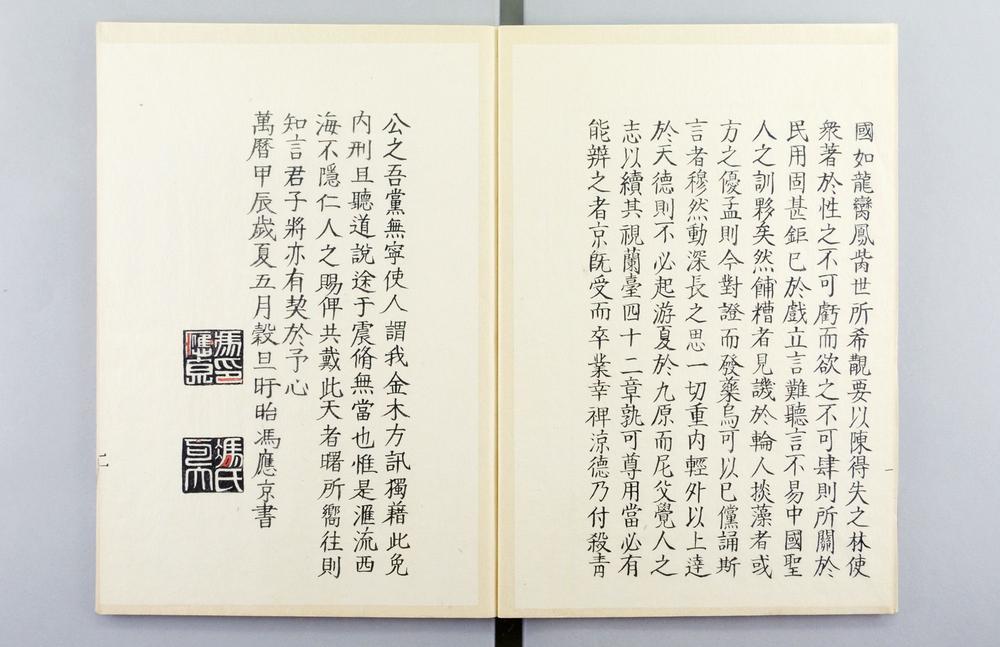 國如龍鸞鳳觜世所希覯要以陳得失之林使
衆著於性之不可虧而欲之不可肆則所關於
民用固甚鉅已於戲立言難聽言不易中國聖
人之訓夥矣然餔糟者見譏於輪人掞藻者或
方之優孟則今對證而發藥烏可以已儻誦斯
言者穆然動深長之思一切重內輕外以上達
於天德則不必起游夏於九原而尼父覺人之
志以續其視蘭臺四十二章孰可尊用當必有
能辨之者京旣受而卒業幸裨涼德乃付殺青
一
公之吾黨無寧使人謂我金木方訊獨藉此免
內刑且聽道說途于震脩無當也惟是滙流西
海不隱仁人之賜俾共戴此天者曙所嚮往則
知言君子將亦有契於予心
萬曆甲辰歲夏五月穀旦盱眙馮應京書
馮印應京
馮氏
二